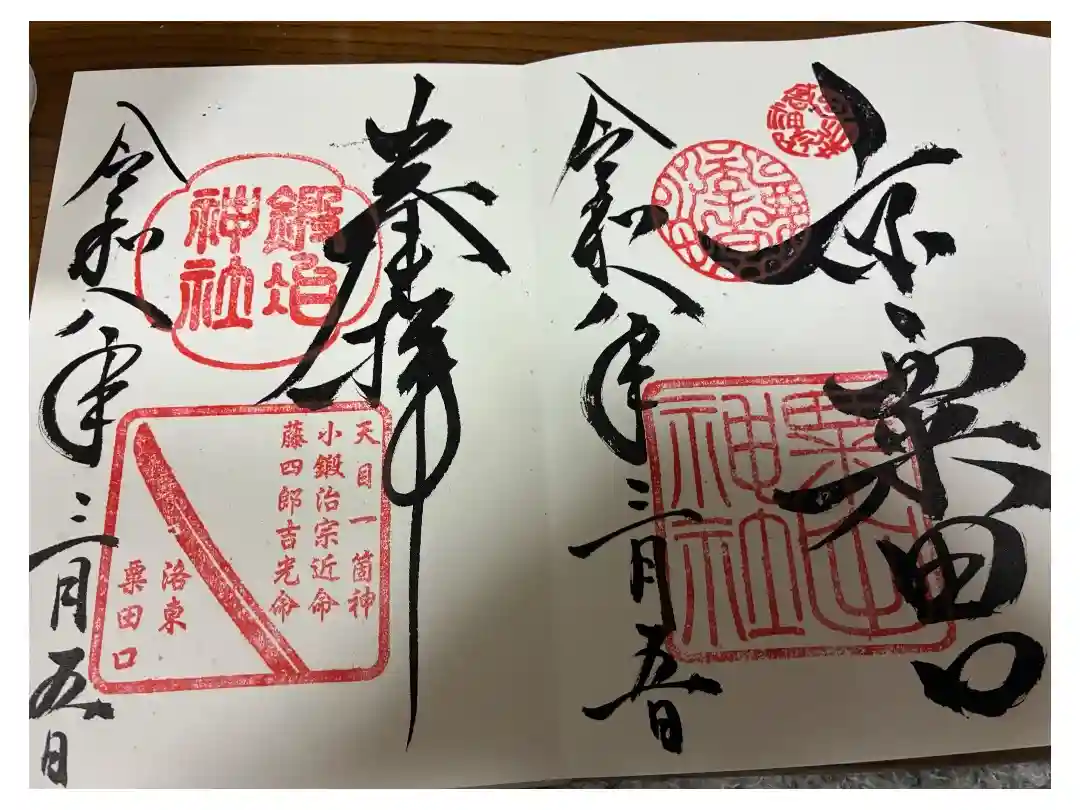 京
粟田口
粟田
神社
令和八年三月五日
奉拝
鍛冶
神社
天目一箇神
小鍛治宗近命
藤四郎吉光命
洛東
粟田口
令和八年三月五日